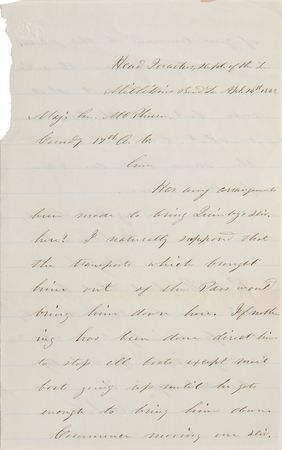 Head Quarters, Dept. of the T.
Millikins Bend La. Apl. 14th 1863
Maj. Gn. McPherson,
Comdg 17th A. C.
Gen.
Has any arrangement
been made to bring Quinby's Div.
here? I naturally supposed that
the transports which brought
him out of the Pass would
bring him down here. If noth-
ing has been done direct him
to stop all boats except mail
boat going up until he gets
enough to bring him down.
Commence moving one Div.